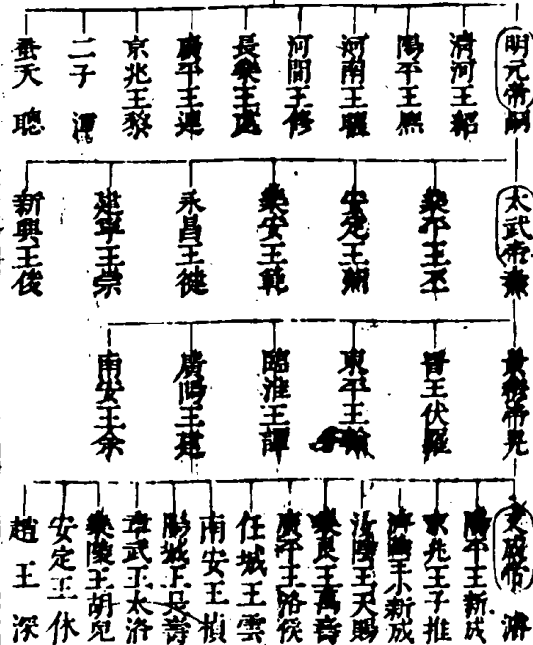 明元帝嗣
清河王紹
陽平王熙
河南王曜
河間王修
長樂王處
廣平王連
京兆王黎
二子渾
蚤夭聰
太武帝燾
樂平王丕
安定王彌
樂安王範
永昌王健
建寧王崇
新興王俊
景穆帝晃
晉王伏羅
東平王翰
臨淮王譚
廣陽王建
南安王余
文成帝濬
陽平王新成
京兆王子推
濟陰王小新成
汝陽王天賜
樂良王萬壽
廣平王洛侯
任城王雲
南安王楨
陽城王長壽
章武王太洛
樂陵王胡兒
安定王休
趙王深